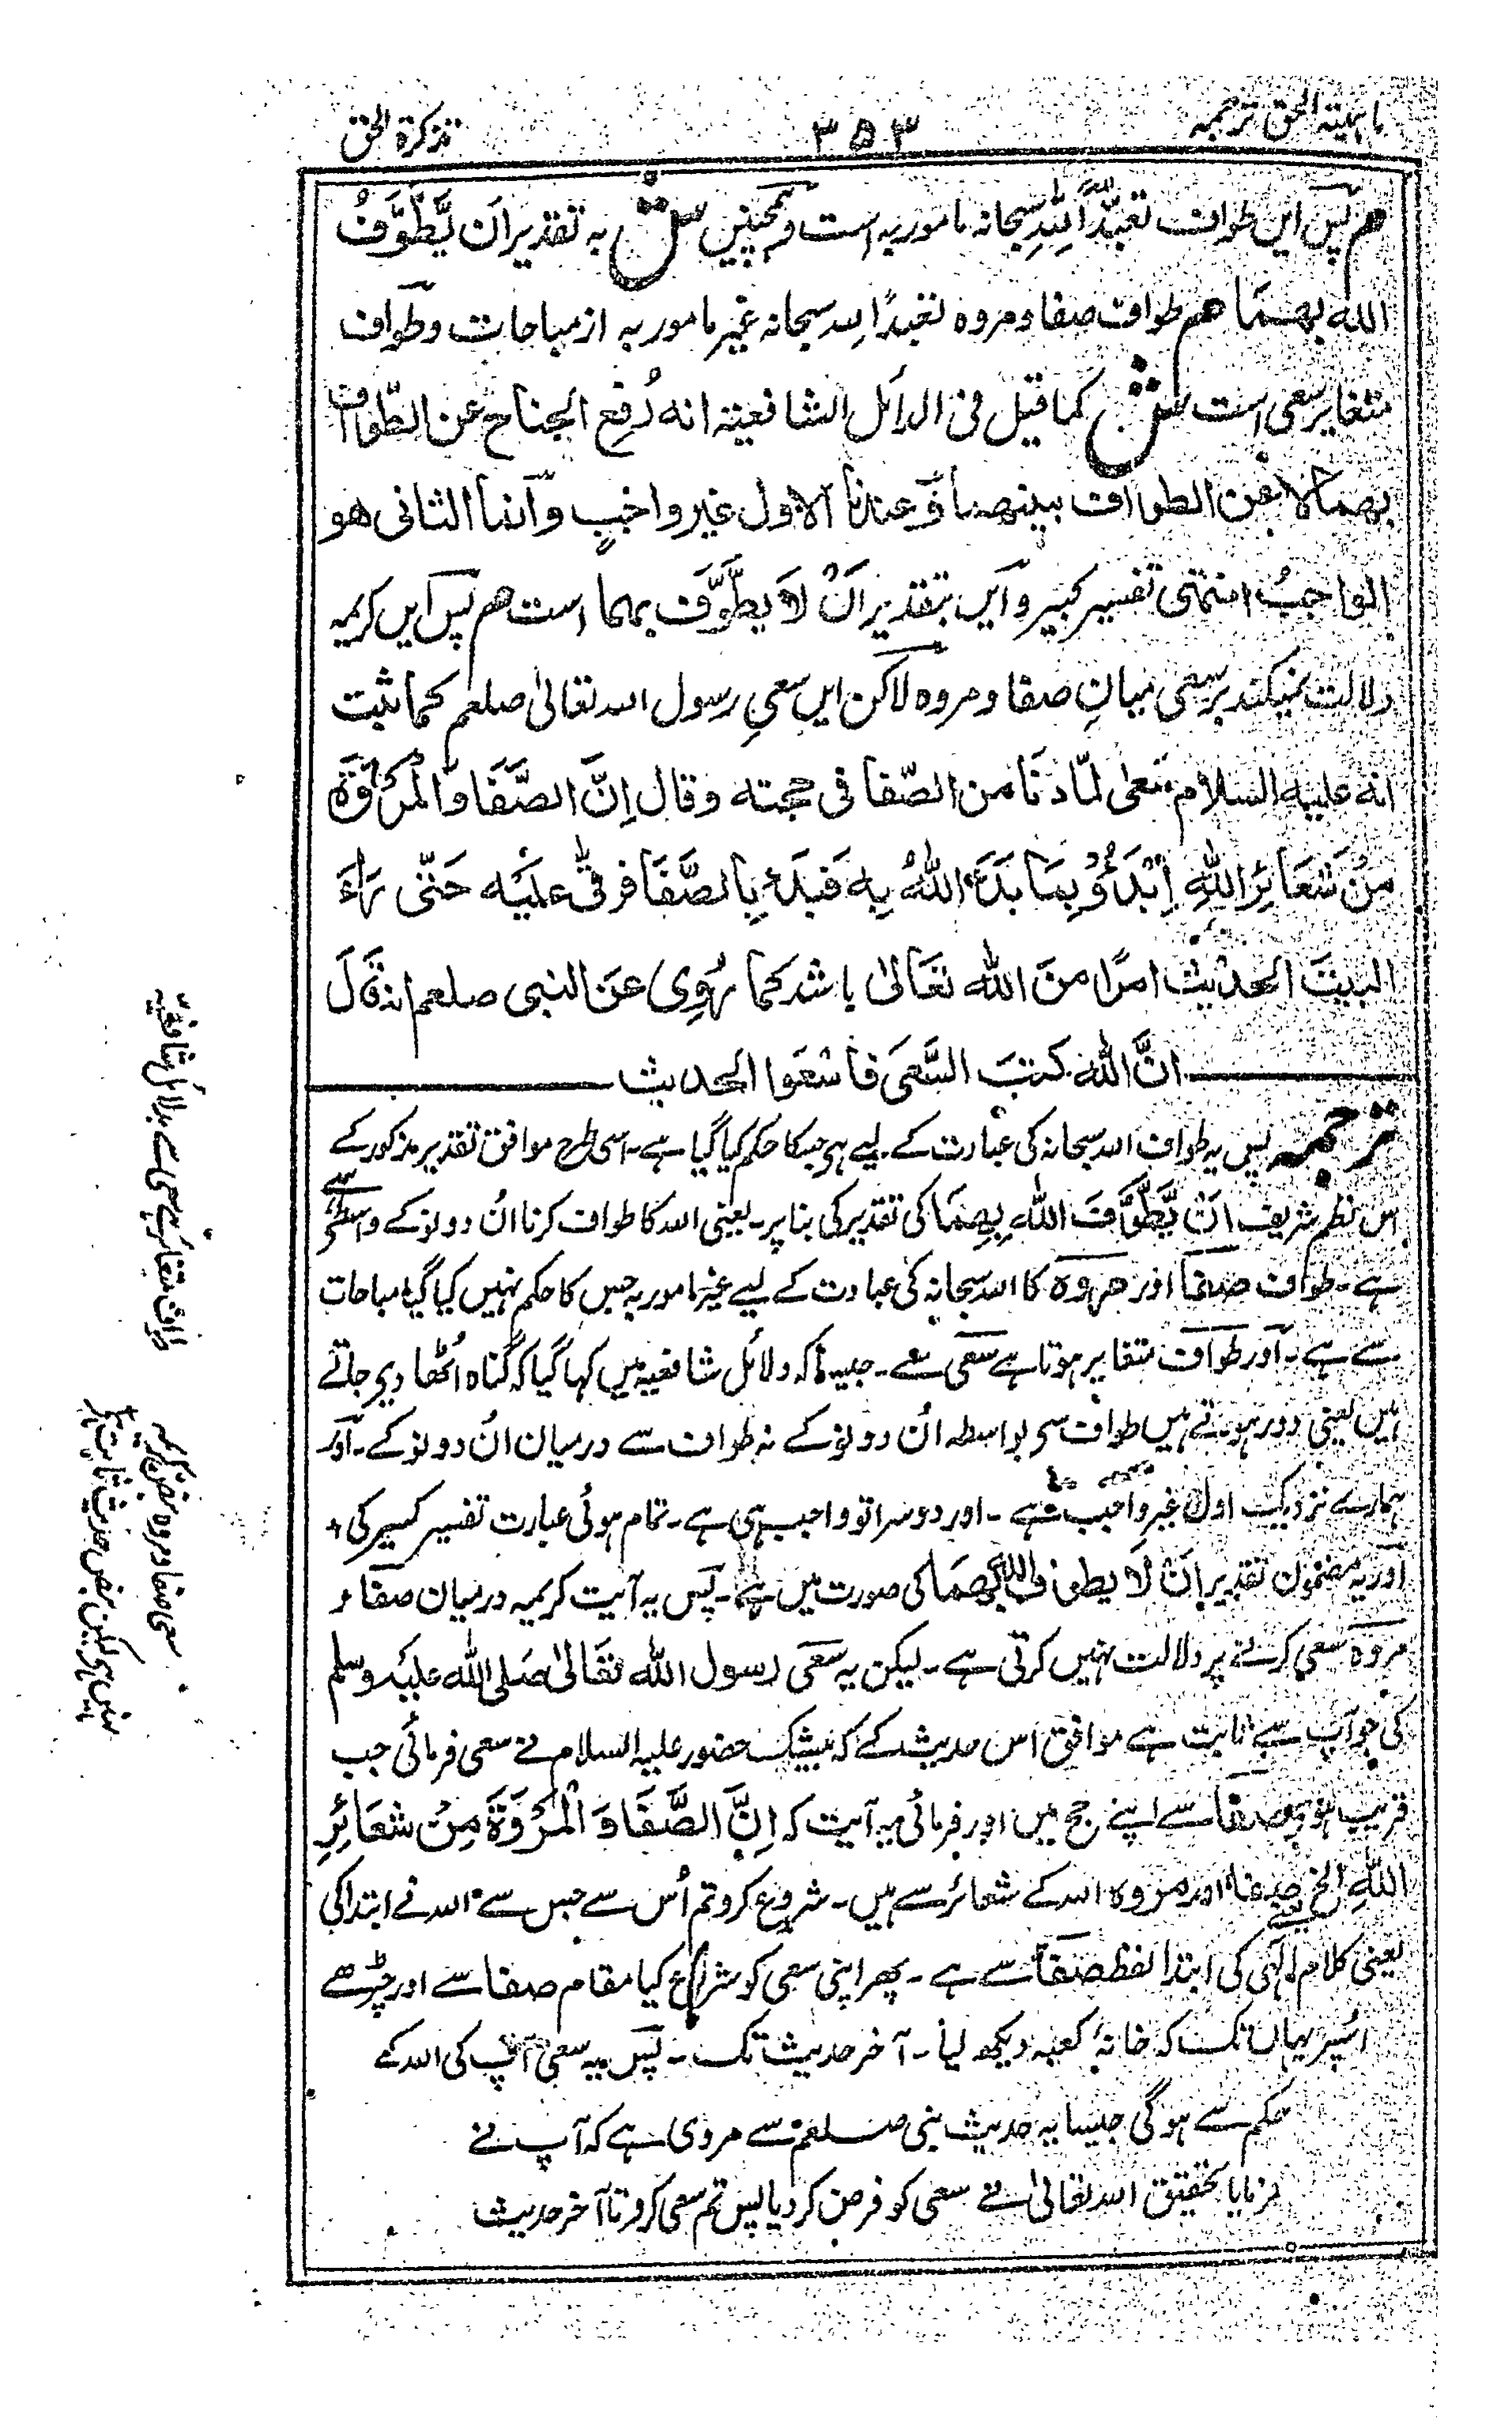 ماہیتہ الحق ترجمہ
۳۵۳
تذکرۃ الحق
ھم پس این طواف تعبّداً لِلّٰہِ سبحانہ مامور بہ است وہمچنین ش بہ تقدیر اَن یَّطَّوَّفُ
اللّٰہ بِھِمَا ھم طواف صفا و مروہ تعبداً للہ سبحانہ غیر مامور بہ از مباحات و طواف
متغایر سعی است ش کما قیل فی الدلائل الشافعیۃ انہ رُفِع الجناح عن الطّواف
بھما لا عن الطواف بینھما وَ عندنا الاول غیر واجبٍ وانما الثانی ھو
الواجبُ انتھی تفسیر کبیر و این بتقدیر اَنْ لَا یطَّوَّف بھما است ھم پس این کریمہ
دلالت نمیکند بر سعی میانِ صفا و مروہ لاکن این سعیِ رسول اللہ تعالیٰ صلعم کما ثبت
انہ علیہ السلام سعٰی لمّا دَنَا من الصّفا فی حجتہ وقال اِنَّ الصَّفَا وَالْمَرْوَۃَ
مِنْ شَعَائِرِ اللّٰہِ اِبْدَءُوْ بِمَا بَدَءَ اللّٰہُ بِہٖ فَبَدَءَ بِالصَّفَا فرقٰی عَلَیْہ حَتّٰی رَاَءَ
البیتَ الحدیث امرًا منَ اللّٰہ تعَالیٰ باشد کما رُوِی عَن النبی صلعم انہ قَالَ
انَّ اللّٰہ کتبَ السَّعیَ فاسْعَوا الحدیث
ترجمہ پس یہ طواف اللہ سبحانہ کی عبادت کے لیے ہی جسکا حکم کیا گیا ہے۔ اسی طرح موافق تقدیر مذکور کے
اس نظم شریف اَنْ یَّطَّوَّفَ اللّٰہ بِھِمَا کی تقدیر کی بنا پر۔ یعنی اللہ کا طواف کرنا اُن دونو کے واسطے سے
ہے۔ طواف صفا اور مروہ کا اللہ سبحانہ کی عبادت کے لیے غیر مامور بہ جس کا حکم نہیں کیا گیا مباحات
سے ہے۔ اور طواف متغایر ہوتا ہے سعی سے۔ جیسا کہ دلائل شافعیہ میں کہا گیا کہ گناہ اُٹھا دیے جاتے
ہیں یعنی دور ہوتے ہیں طواف سے بواسطہ اُن دونو کے نہ طواف سے درمیان اُن دونو کے۔ اور
ہمارے نزدیک اول غیر واجب ہے۔ اور دوسرا تو واجب ہی ہے۔ تمام ہوئی عبارت تفسیر کبیر کی +
اور یہ مضمون تقدیر اَنْ لَا یطوف اللّٰہ بِھِمَا کی صورت میں ہے۔ پس یہ آیت کریمہ درمیان صفا و
مروہ سعی کرنے پر دلالت نہیں کرتی ہے۔ لیکن یہ سعی رسول اللہ تعالیٰ صلی اللہ علیہ وسلم
کی جو آپ سے ثابت ہے موافق اس حدیث کے کہ بیشک حضور علیہ السلام نے سعی فرمائی جب
قریب ہوے صفا سے اپنے حج میں اور فرمائی یہ آیت کہ اِنَّ الصَّفَا وَ الْمَرْوَۃَ مِنْ شَعَائِرِ
اللّٰہِ الخ صفا اور مروہ اللہ کے شعائر سے ہیں۔ شروع کرو تم اُس سے جس سے اللہ نے ابتدا کی
یعنی کلام الٰہی کی ابتدا لفظ صفا سے ہے۔ پھر اپنی سعی کو شروع کیا مقام صفا سے اور چڑھے
اسپر یہاں تک کہ خانۂ کعبہ دیکھ لیا۔ آخر حدیث تک۔ پس یہ سعی آپ کی اللہ کے
حکم سے ہوگی جیسا یہ حدیث نبی صلعم سے مروی ہے کہ آپ نے
فرمایا تحقیق اللہ تعالیٰ نے سعی کو فرض کر دیا پس تم سعی کرو تا آخر حدیث
طواف متغایر ہے سعی سے بدلائل شافعیہ
سعی صفا و مروہ